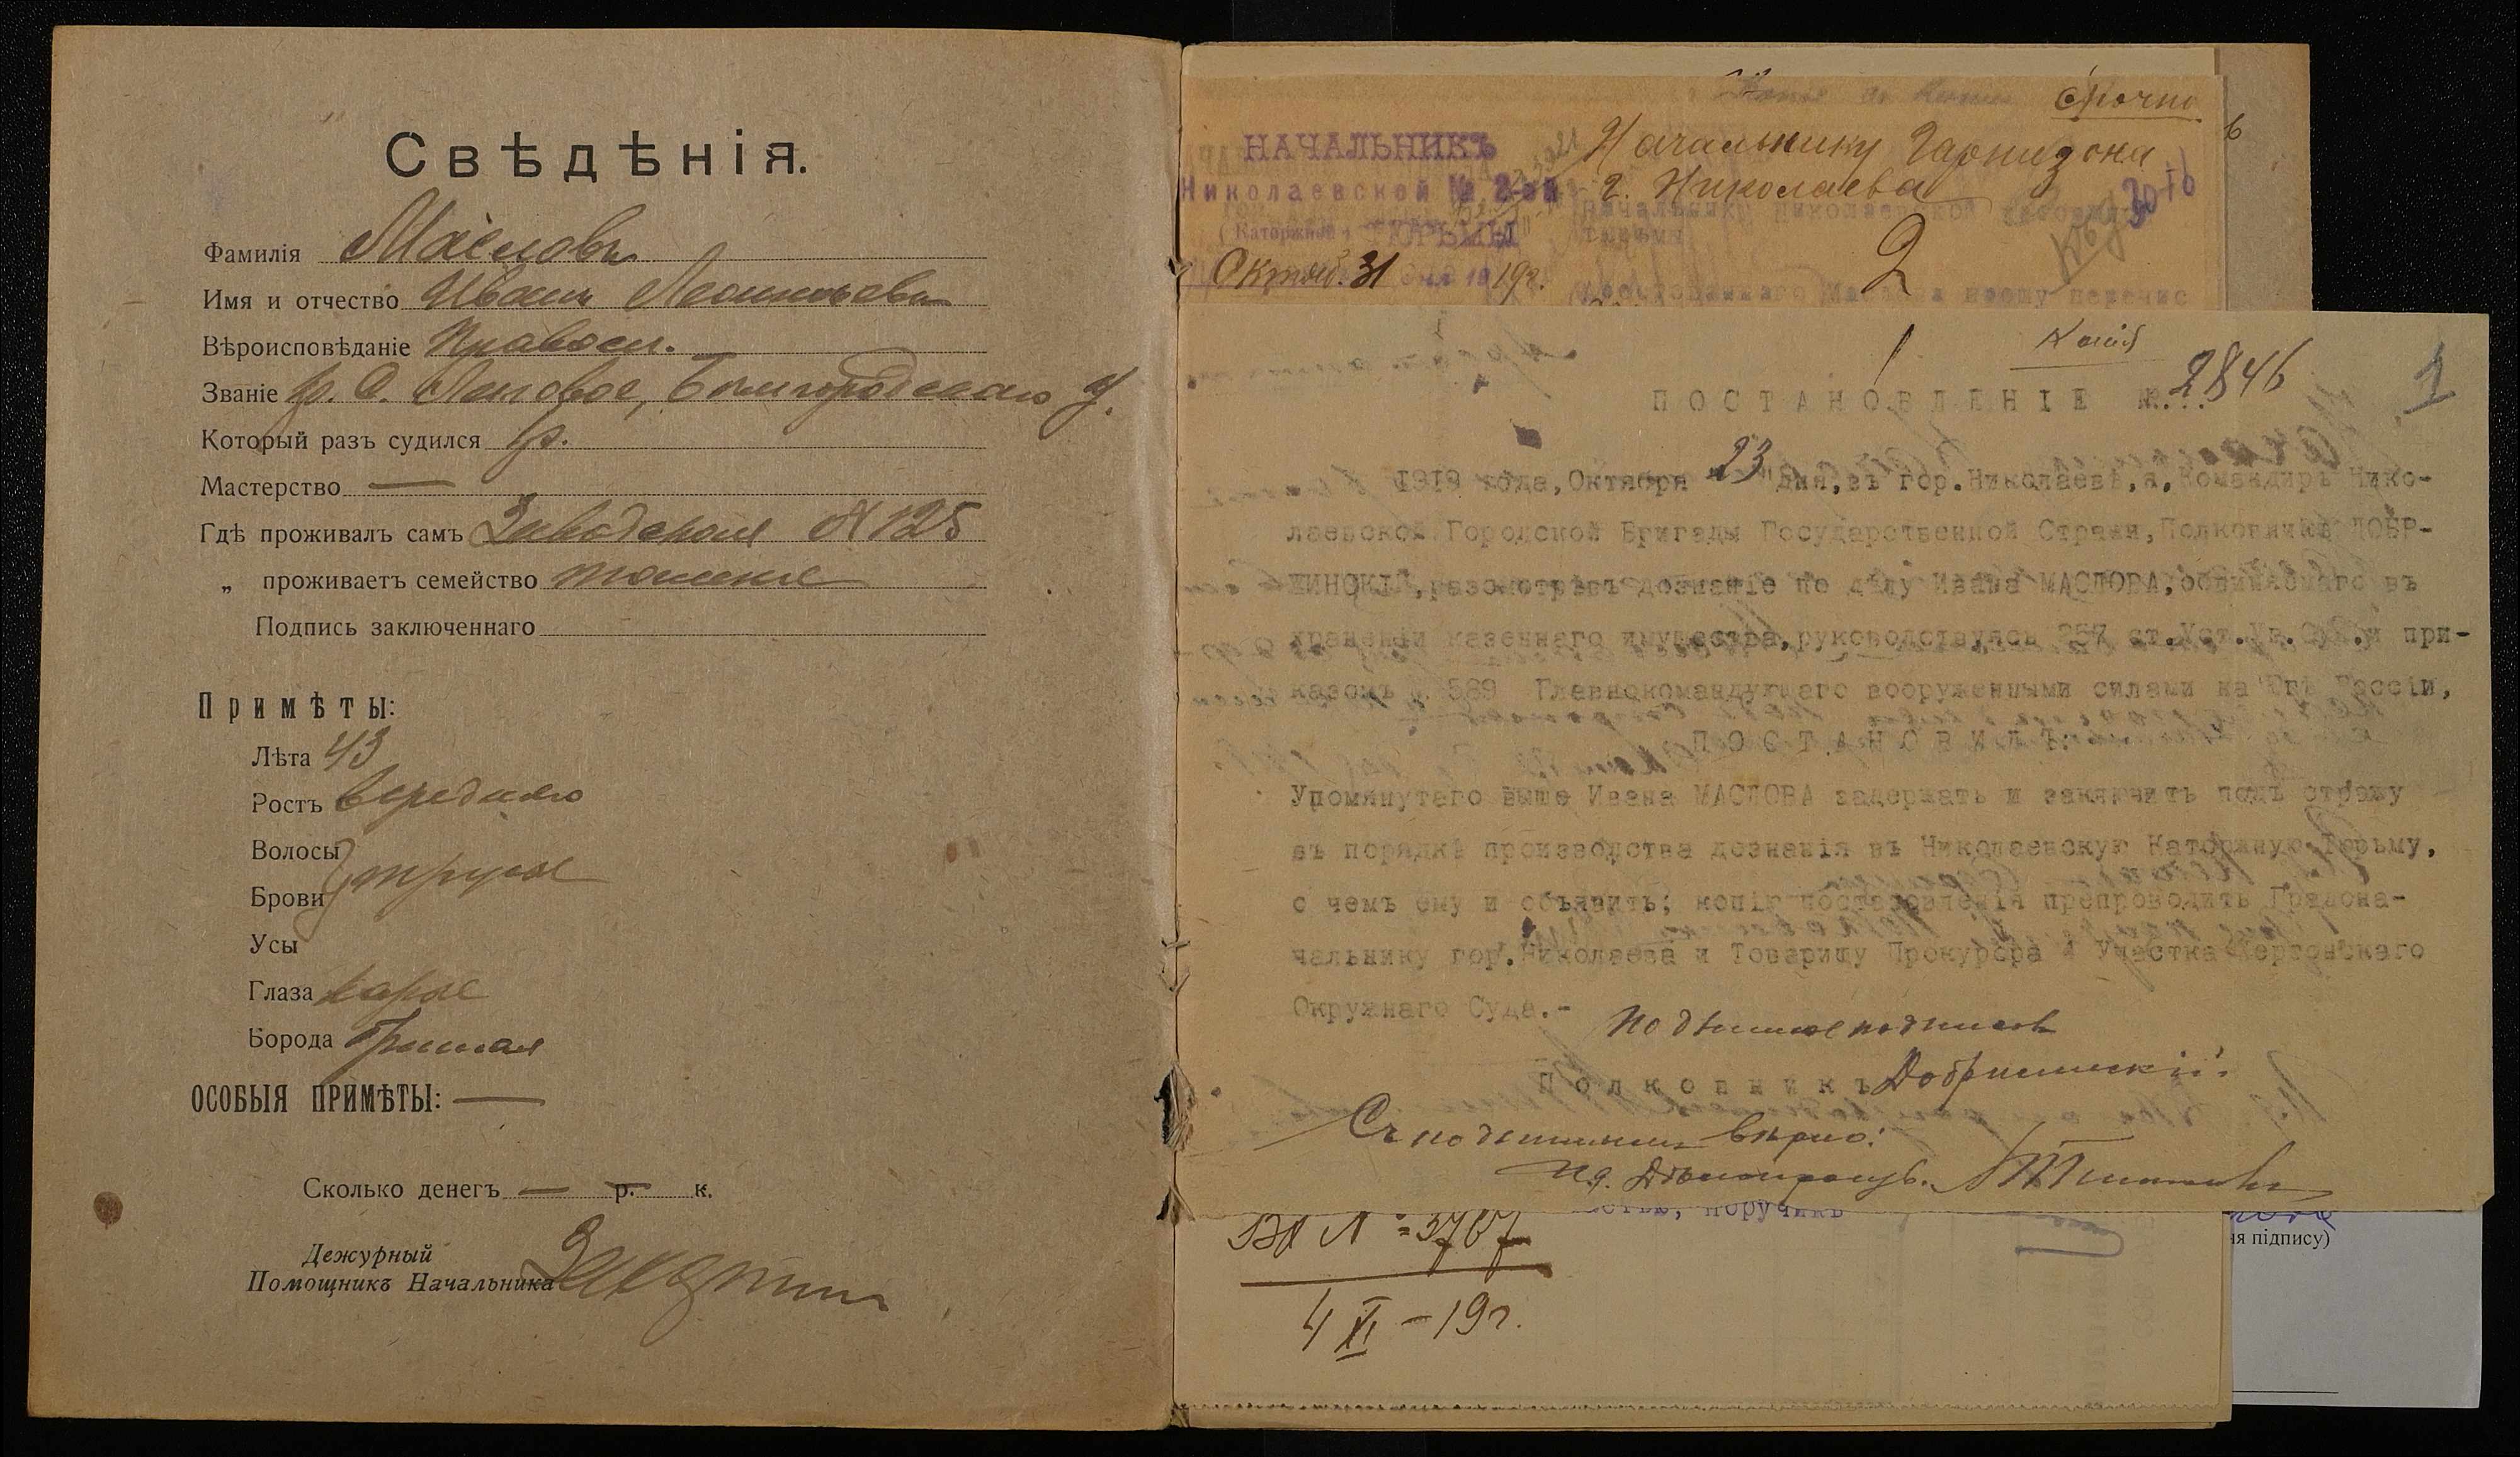 Свѣдѣнія.
Фамилія Масловъ
Имя и отчество Иванъ Леонтьевъ
Вѣроисповѣданіе Православ.
Званіе кр. с. Липовое, Белгородскаго у.
Который разъ судился
Мастерство —
Гдѣ проживалъ самъ Заводская № 125
„ проживаетъ семейство
Подпись заключеннаго
Примѣты:
Лѣта 43
Ростъ Средняго
Волосы
Брови русые
Усы
Глаза карые
Борода бритая
ОСОБЫЯ ПРИМѢТЫ: —
Сколько денегъ — р. — к.
Дежурный
Помощникъ Начальника
Срочно
НАЧАЛЬНИКЪ
Николаевской № 2-ой
(Каторжной) ТЮРЬМЫ
Октяб. 31 дня 1919г.
Начальнику Гарнизона
г. Николаева
2
Копія
1
ПОСТАНОВЛЕНІЕ №. 2846
1919 года, Октября "23" дня, въ гор. Николаевѣ, я, Командиръ Нико-
лаевской Городской Бригады Государственной Стражи, Полковникъ ДОБР-
ШИНСКІЙ, разсмотрѣвъ дознаніе по дѣлу Ивана МАСЛОВА, обвиняемаго въ
храненіи казеннаго имущества, руководствуясь 257 ст. Уст. Уг. Суд. и при-
казомъ № 589 Главнокомандующаго вооруженными силами на Югѣ Россіи,
ПОСТАНОВИЛЪ:
Упомянутаго выше Ивана МАСЛОВА задержать и заключить подъ стражу
въ порядкѣ производства дознанія въ Николаевскую Каторжную Тюрьму,
о чемъ ему и объявить; копію постановленія препроводить Градона-
чальнику гор. Николаева и Товарищу Прокурора 4 Участка Херсонскаго
Окружнаго Суда.-
Подлинное подписалъ
Полковникъ Добршинскій
Съ подлиннымъ вѣрно:
И.д. Дѣлопроизв.
поручикъ
ВХ № 3767
4 XI - 19г.
ія підпису)